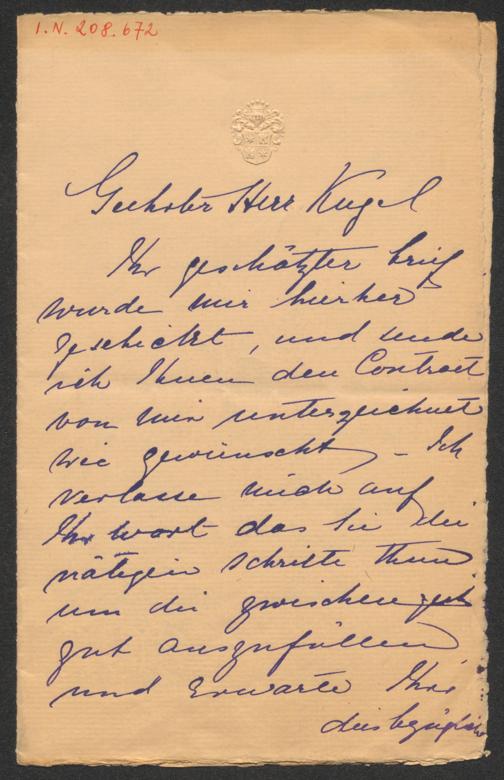 I.N. 208.672
Geehrter Herr Kugel
Ihr geschätzter brief
wurde mir hierher
geschickt, und sende
ich Ihnen den Contract
von mir unterzeichnet
wie gewünscht, – Ich
verlasse mich auf
Ihr wort das Sie die
nötigen schritte thun
um die zwischen zeit
gut auszufüllen
und Erwarte Ihre
diesbezügliche